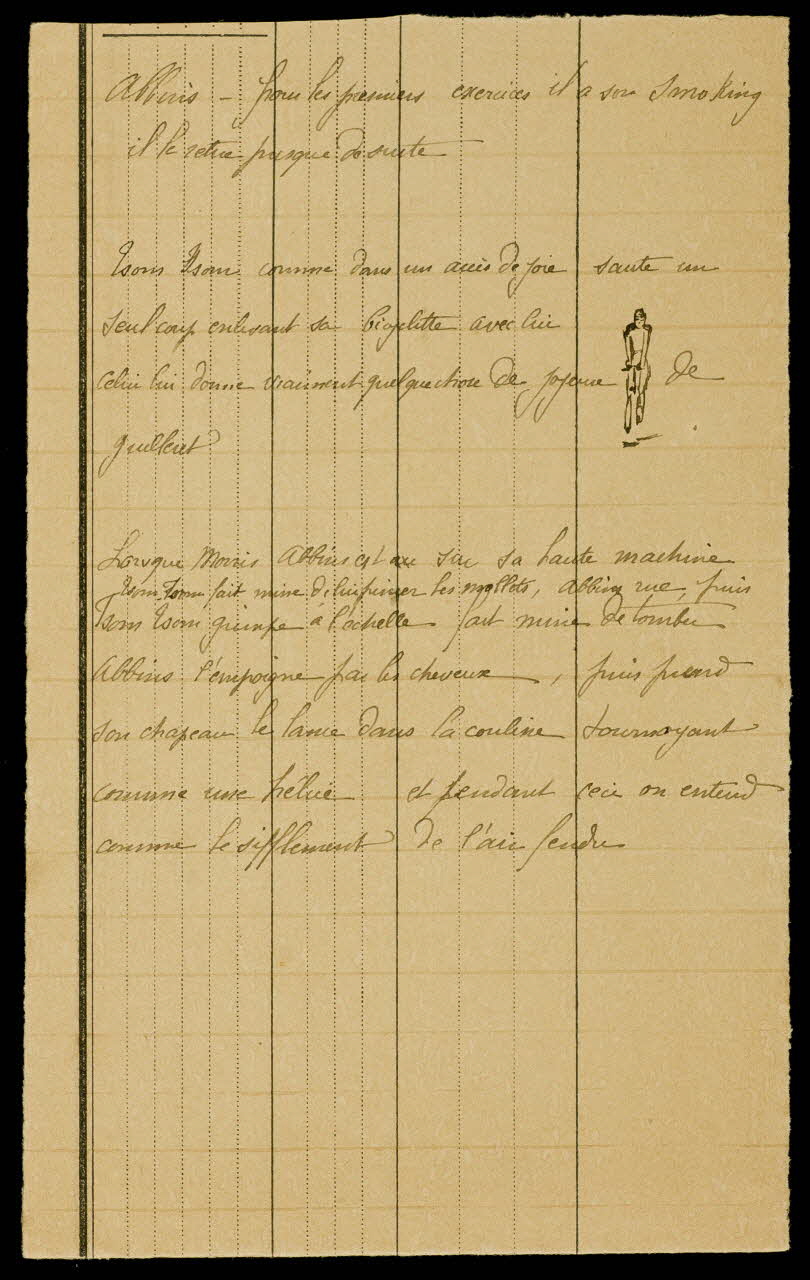 Abbins – pour les premiers exercices il a son smoking
il le retire presque de suite
Tsom Tsom comme dans un accès de joie saute un
seul coup enlevant sa bicyclette avec lui
celui lui donne vraiment quelque chose de joyeux de
guilleret
Lorsque Moris Abbins est sur sa haute machine
Tsom Tsom fait mine de lui pincer les mollets, Abbins rue, puis
Tsom Tsom grimpe à l'échelle fait mine de tomber
Abbins l'empoigne par les cheveux, puis prend
son chapeau le lance dans la coulisse tournoyant
comme une hélice et pendant ceci on entend
comme le sifflement de l'air fendu